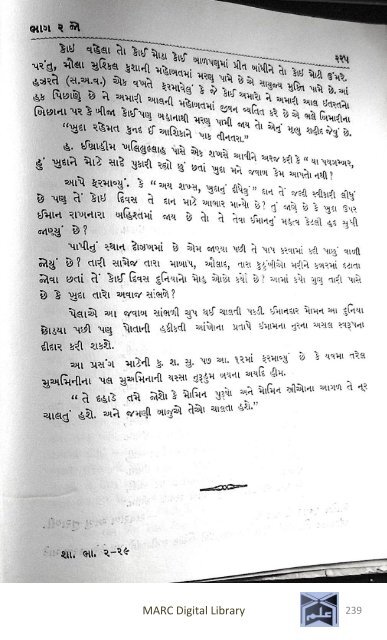 ભાગ ૨ જો
૨૨૫
કોઈ વહેલા તો કોઈ મોડા કોઈ બાળપણમાં પ્રીત બાંધીને તો કોઈ મોટી ઉંમરે.
પરંતુ, મૌલા મુશ્કિલ કુશાની મહોબતમાં મરણ પામે છે એ સાયુજ્ય મુક્તિ પામે છે. આં
હઝરતે (સ.અ.વ.) એક વખતે ફરમાવેલું કે જે કોઈ અમારો ને અમારી આલ ઇતરતનો
હક પિછાણે છે ને અમારી આલની મહોબતમાં જીવન વ્યતિત કરે છે એ ભલે બિમારીના
બિછાના પર કે બીજા કોઈપણ બહાનાથી મરણ પામી જાય તો એનું મૃત્યુ શહીદ જેવું છે.
“ખુદા રહેમત કુનદ ઈ આશિકાને પાક તીનતરા.”
હ. ઇબ્રાહીમ ખલિલુલ્લાહ પાસે એક શખસે આવીને અરજ કરી કે “યા પયગમ્બર,
હું ખુદાને માટે સાદે પુકારી રહ્યો છું છતાં ખુદા મને જવાબ કેમ આપતો નથી ?
આપે ફરમાવ્યું. કે “અય શખ્સ, ખુદાનું દીધેલું” દાન તેં જલ્દી સ્વીકારી લીધું
છે પણ તેં કોઈ દિવસ તે દાન માટે આભાર માન્યો છે ? તું જાણે છે કે ખુદા ઉપર
ઈમાન રાખનારા બહિશ્તમાં જાય છે તો તેં તેવા ઈમાનનું મહત્વ કેટલી હદ સુધી
જાણ્યું છે ?
પાપીનું સ્થાન દોઝખમાં છે એમ જાણ્યા પછી તે પાપ કરવામાં કદી પાછું વાળી
જોયું છે ? તારી સામેજ તારા માબાપ, ઔલાદ, તારા કુટુંબીઓ મરીને કબરમાં દટાતા
જોવા છતાં તેં કોઈ દિવસ દુનિયાનો મોહ ઓછો કર્યો છે ? આમાં કયો ગુણ તારી પાસે
છે કે ખુદા તારો અવાજ સાંભળે ?
પેલાએ આ જવાબ સાંભળી ચુપ થઈ ચાલતી પકડી. ઈમાનદાર મોમન આ દુનિયા
છોડયા પછી પણ પોતાની હકીકતી આંખોના પ્રતાપે ઈમામના નુરના અસલ સ્વરૂપના
દીદાર કરી શકશે.
આ પ્રસંગ માટેની કુ. શ. સુ. ૫૭ આ. ૧૨માં ફરમાવ્યું છે કે યવમા તરેલ
મુઅમિનીના વલ મુઅમિનાતી યસ્આ નુરૂહુમ બયના અયદિ હીમ.
“તે દહાડે તમે જોશો કે મોમિન પુરૂષો અને મોમિન સ્ત્રીઓના આગળ તે નૂર
ચાલતું હશે. અને જમણી બાજુએ તેઓ ચાલતા હશે.”
શા. ભા. ૨-૨૯
MARC Digital Library
239